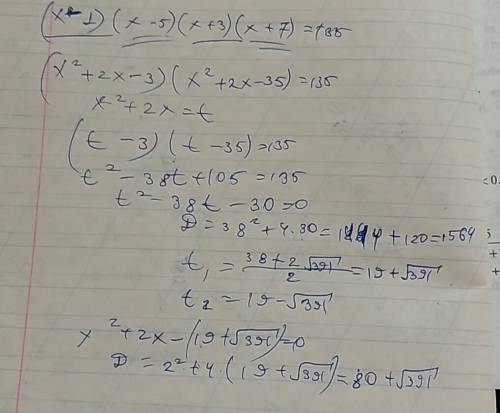 (x-1)(x-5)(x+3)(x+7)=135
(x²+2x-3)(x²+2x-35)=135
x²+2x=t
(t-3)(t-35)=135
t²-38t+105=135
t²-38t-30=0
D=38²+4.30=1444+120=1564
t₁=(38+2√391)/2=19+√391
t₂=19-√391
x²+2x-(19+√391)=0
D=2²+4.(19+√391)=80+√391